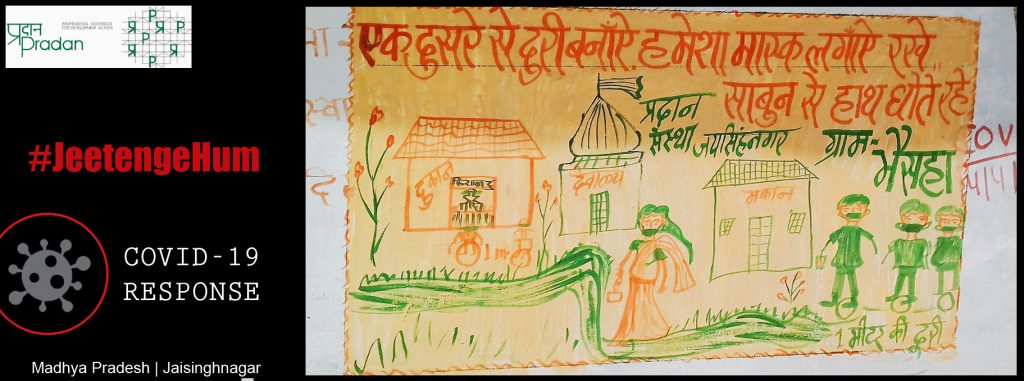 प्रदान
Pradan
PROFESSIONAL ASSISTANCE
FOR DEVELOPMENT ACTION
#JeetengeHum
COVID-19
RESPONSE
Madhya Pradesh | Jaisinghnagar
एक दुसरे से दुरी बनाऐं. हमेशा मास्क लगाऐं रखे
साबुन से हाथ धोते रहे
प्रदान
संस्था जयसिंहनगर
ग्राम-
भैसहा
दुकान
देवालय
मकान
1 मीटर की दूरी